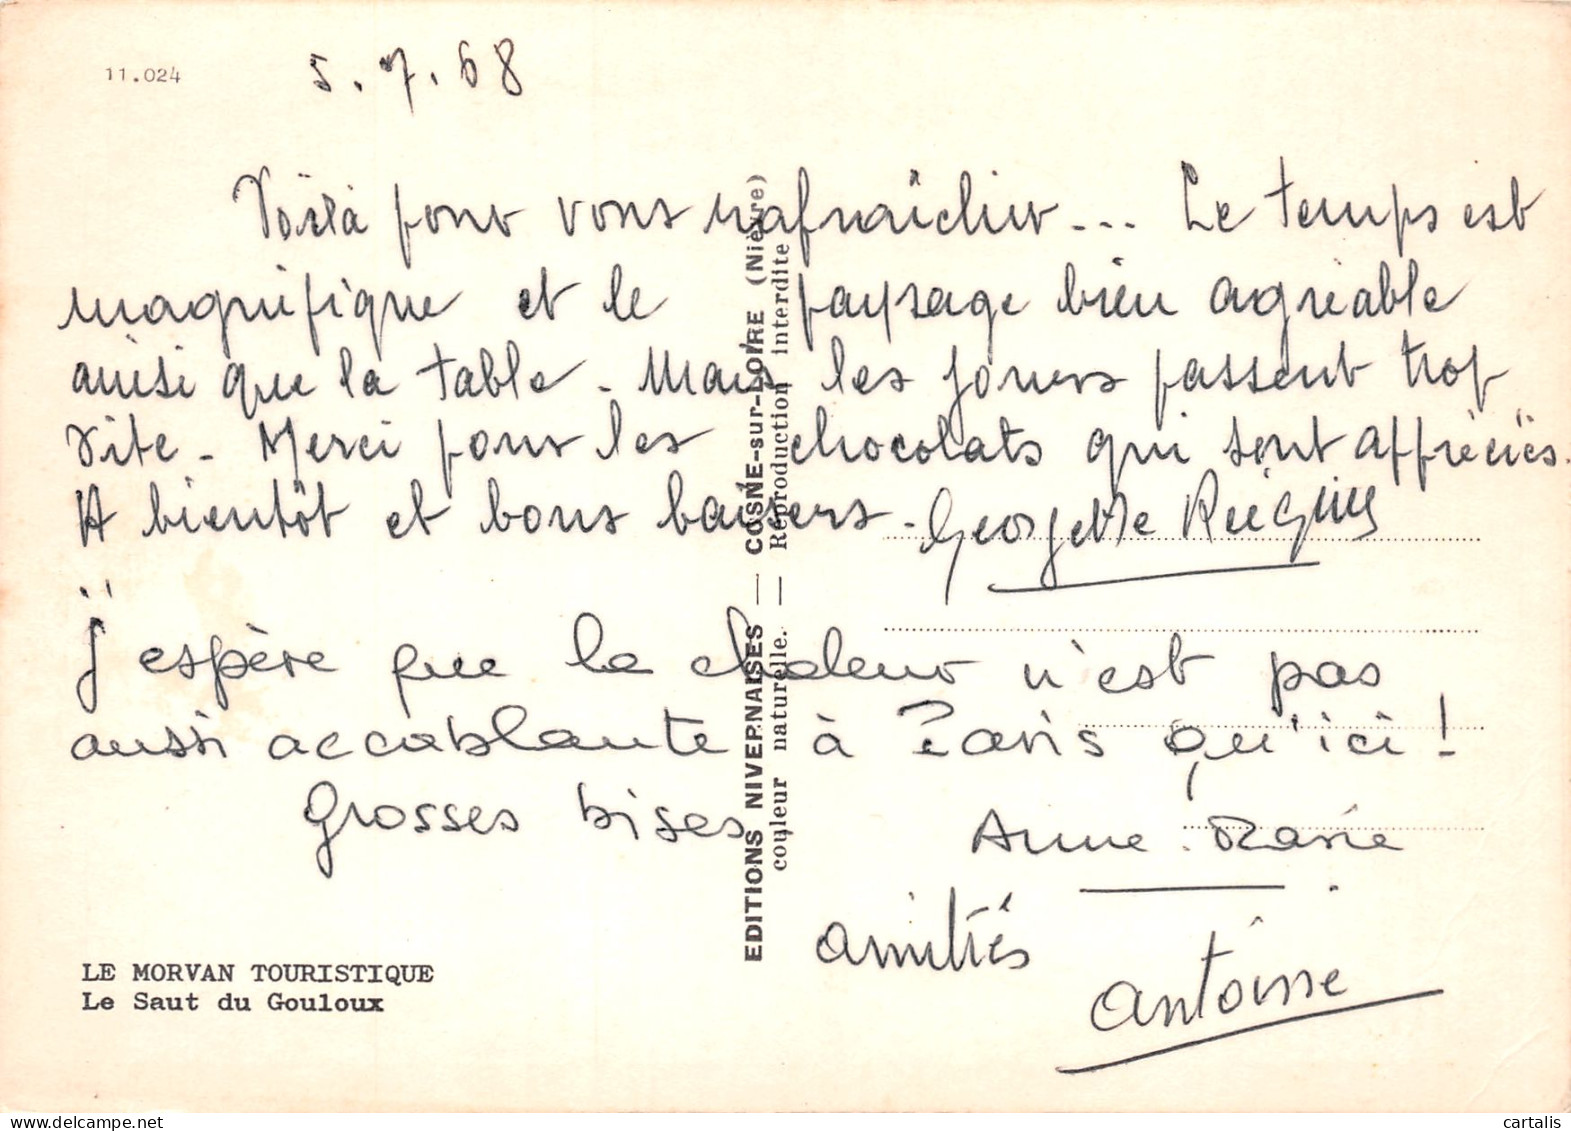 11.024
5.7.68
Voilà pour vous rafraîchir... Le temps est
magnifique et le paysage bien agréable
ainsi que la table. Mais les jours passent trop
vite. Merci pour les chocolats qui sont appréciés.
A bientôt et bons baisers. Georgette
J'espère que la chaleur n'est pas
aussi accablante à Paris qu'ici !
Grosses bises
Anne-Marie
amitiés
Antoine
LE MORVAN TOURISTIQUE
Le Saut du Gouloux
EDITIONS NIVERNAISES — COSNE-sur-LOIRE (Nièvre)
couleur naturelle. — Reproduction interdite
delcampe.net
cartalis